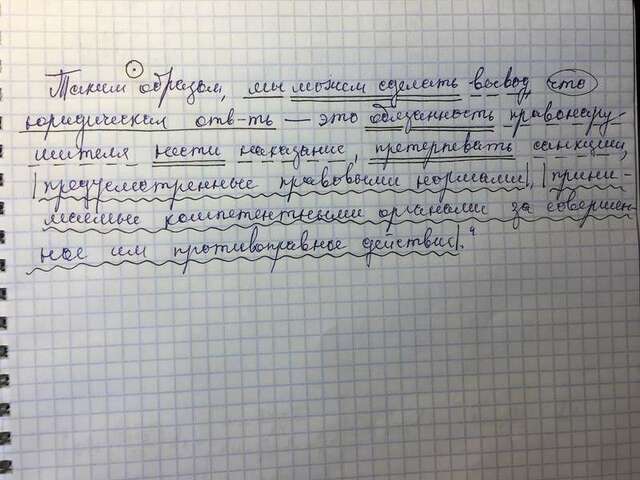 Таким образом, мы можем сделать вывод что
юридическая отв-ть — это обязанность правонару-
шителя нести наказание, претерпевать санкции,
предусмотренные правовыми нормами, прини-
маемые компетентными органами за совершен
ное им противоправное действие.